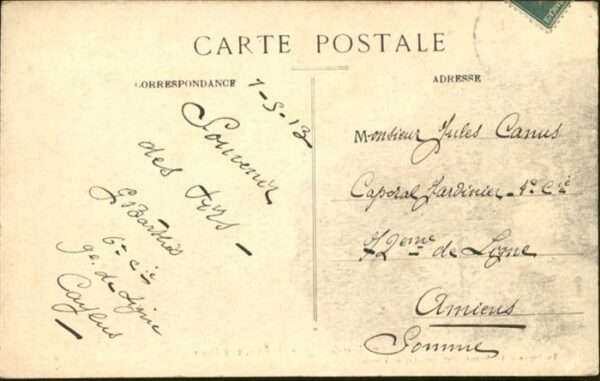 CARTE POSTALE
CORRESPONDANCE
ADRESSE
7-5-13
Souvenir
des tirs -
6e Cie
9e. de Ligne
Monsieur Jules Camus
Caporal Jardinier - 4e Cie
72eme de Ligne
Amiens
Somme